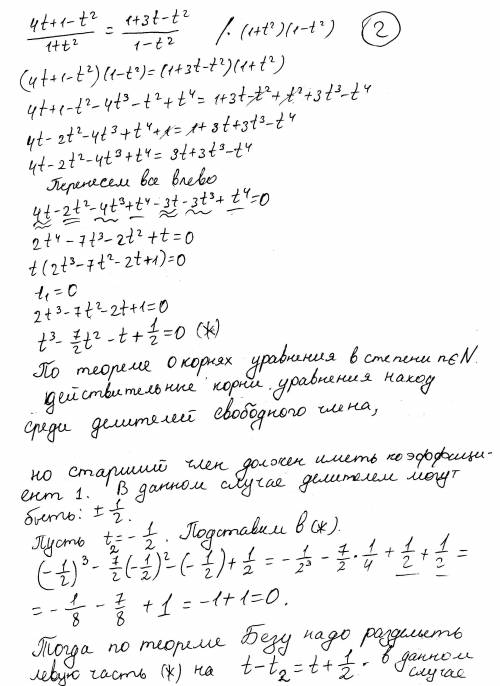 (4t+1-t²)/(1+t²) = (1+3t-t²)/(1-t²) /· (1+t²)(1-t²) 2
(4t+1-t²)(1-t²)=(1+3t-t²)(1+t²)
4t+1-t²-4t³-t²+t⁴=1+3t-t²+t²+3t³-t⁴
4t-2t²-4t³+t⁴+1=1+3t+3t³-t⁴
4t-2t²-4t³+t⁴=3t+3t³-t⁴
Перенесем все влево
4t-2t²-4t³+t⁴-3t-3t³+t⁴=0
2t⁴-7t³-2t²+t=0
t(2t³-7t²-2t+1)=0
t₁=0
2t³-7t²-2t+1=0
t³-7/2t²-t+1/2=0 (*)
По теореме о корнях уравнения в степени n∈N.
действительные корни уравнения наход
среди делителей свободного члена,
но старший член должен иметь коэффици-
ент 1. В данном случае делителем могут
быть: ±1/2.
Пусть t₂=-1/2. Подставим в (*).
(-1/2)³-7/2(-1/2)²-(-1/2)+1/2=-1/2³-7/2·1/4+1/2+1/2=
=-1/8-7/8+1=-1+1=0.
Тогда по теореме Безу надо разделить
левую часть (*) на t-t₂=t+1/2. в данном
случае